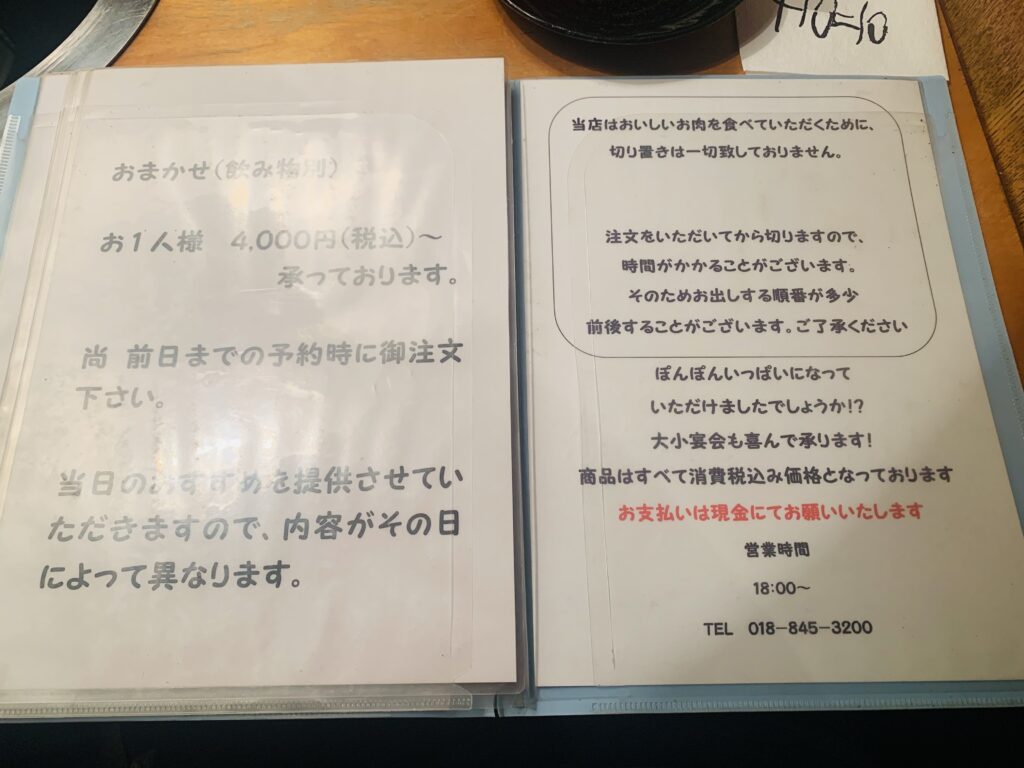 おまかせ(飲み物別)
お1人様 4,000円(税込)~
承っております。
尚 前日までの予約時に御注文
下さい。
当日のおすすめを提供させてい
ただきますので、内容がその日
によって異なります。
当店はおいしいお肉を食べていただくために、
切り置きは一切致しておりません。
注文をいただいてから切りますので、
時間がかかることがございます。
そのためお出しする順番が多少
前後することがございます。ご了承ください
ぽんぽんいっぱいになって
いただけましたでしょうか!?
大小宴会も喜んで承ります!
商品はすべて消費税込み価格となっております
お支払いは現金にてお願いいたします
営業時間
18:00~
TEL 018-845-3200